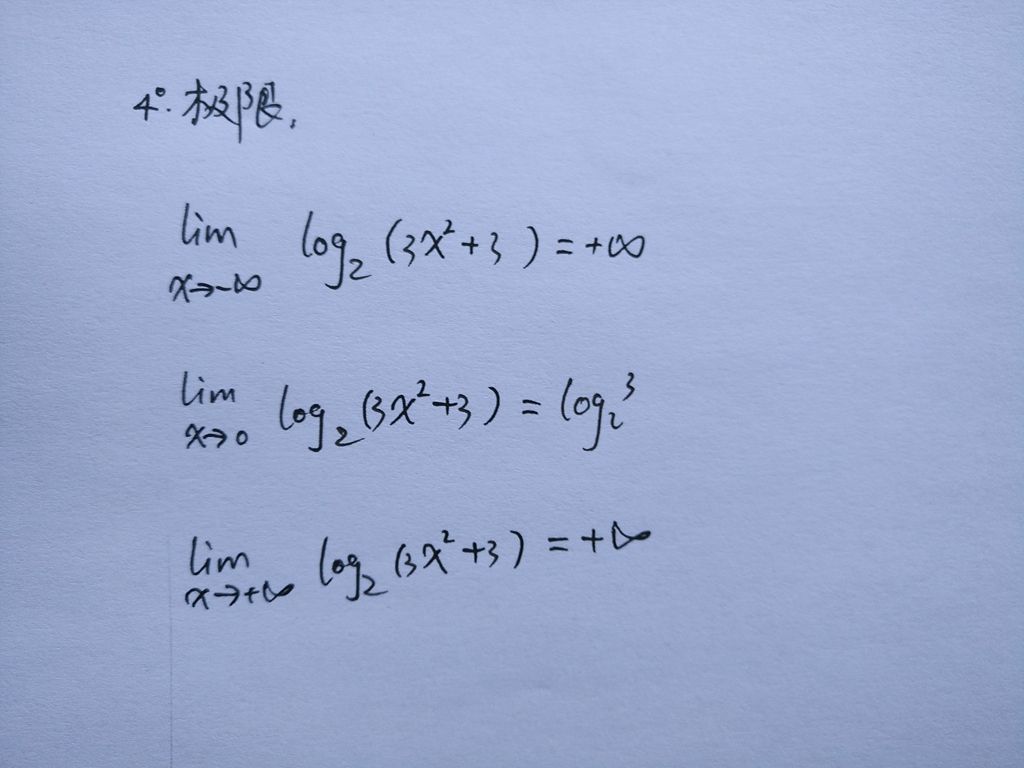 4°. 极限.
lim log₂(3x²+3) = +∞
x→-∞
lim log₂(3x²+3) = log₂³
x→0
lim log₂(3x²+3) = +∞
x→+∞